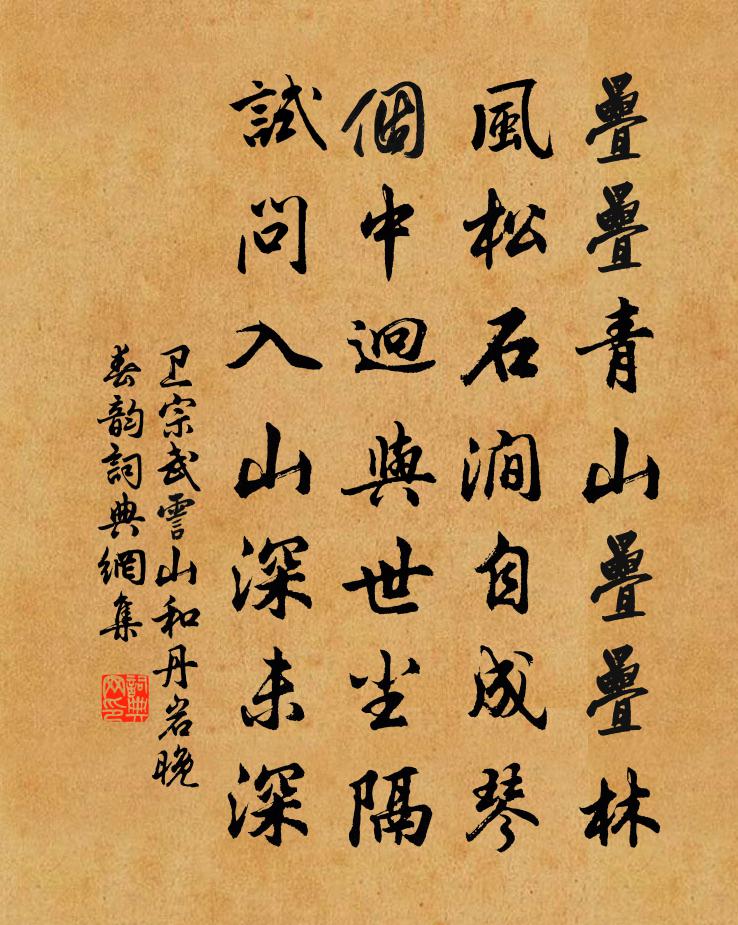 疊疊青山疊疊林
風松石澗自成琴
個中迥與世尘隔
試問入山深未深
卫宗武霅山和丹岩晚
春韵詞典網集
詞典网印